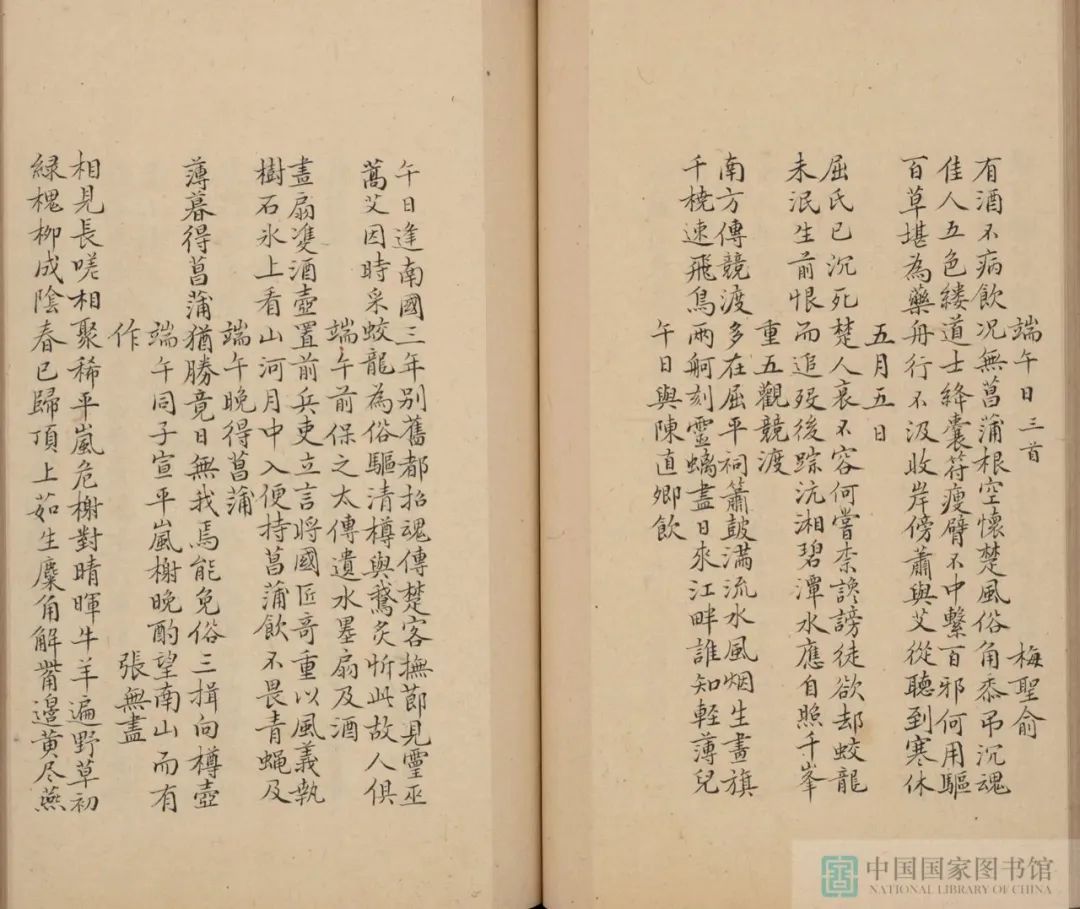 端午日三首 梅聖俞
有酒不病飲况無菖蒲根空懷楚風俗角黍弔沉魂
佳人五色縷道士絳囊符瘦臂不中繫百邪何用驅
百草堪為藥舟行不汲收岸傍蕭與艾從聽到寒休
五月五日
屈氏已沉死楚人哀不容何嘗柰讒謗徒欲却蛟龍
未泯生前恨而追歿後踪沅湘碧潭水應自照千峯
重五觀競渡
南方傳競渡多在屈平祠簫鼓滿流水風烟生畫旗
千橈速飛鳥兩舸刻靈螭盡日來江畔誰知輕薄兒
午日與陳直卿飲
午日逢南國三年别舊都招魂傳楚客撫節見靈巫
蒿艾因時采蛟龍為俗驅清樽與鵞炙忻此故人俱
端午前保之太傅遺水墨扇及酒
畫扇雙酒壺置前兵吏立言將國匠哥重以風義執
樹石氷上看山河月中入便持菖蒲飲不畏青蝇及
端午晚得菖蒲
薄暮得菖蒲猶勝竟日無我焉能免俗三揖向樽壺
端午同子宣平嵐榭晚酌望南山而有
作 張無盡
相見長嗟相聚稀平嵐危榭對晴暉牛羊遍野草初
緑槐柳成陰春已歸頂上茹生麋角解觜邊黄尽燕
中国国家图书馆
NATIONAL LIBRARY OF CHINA